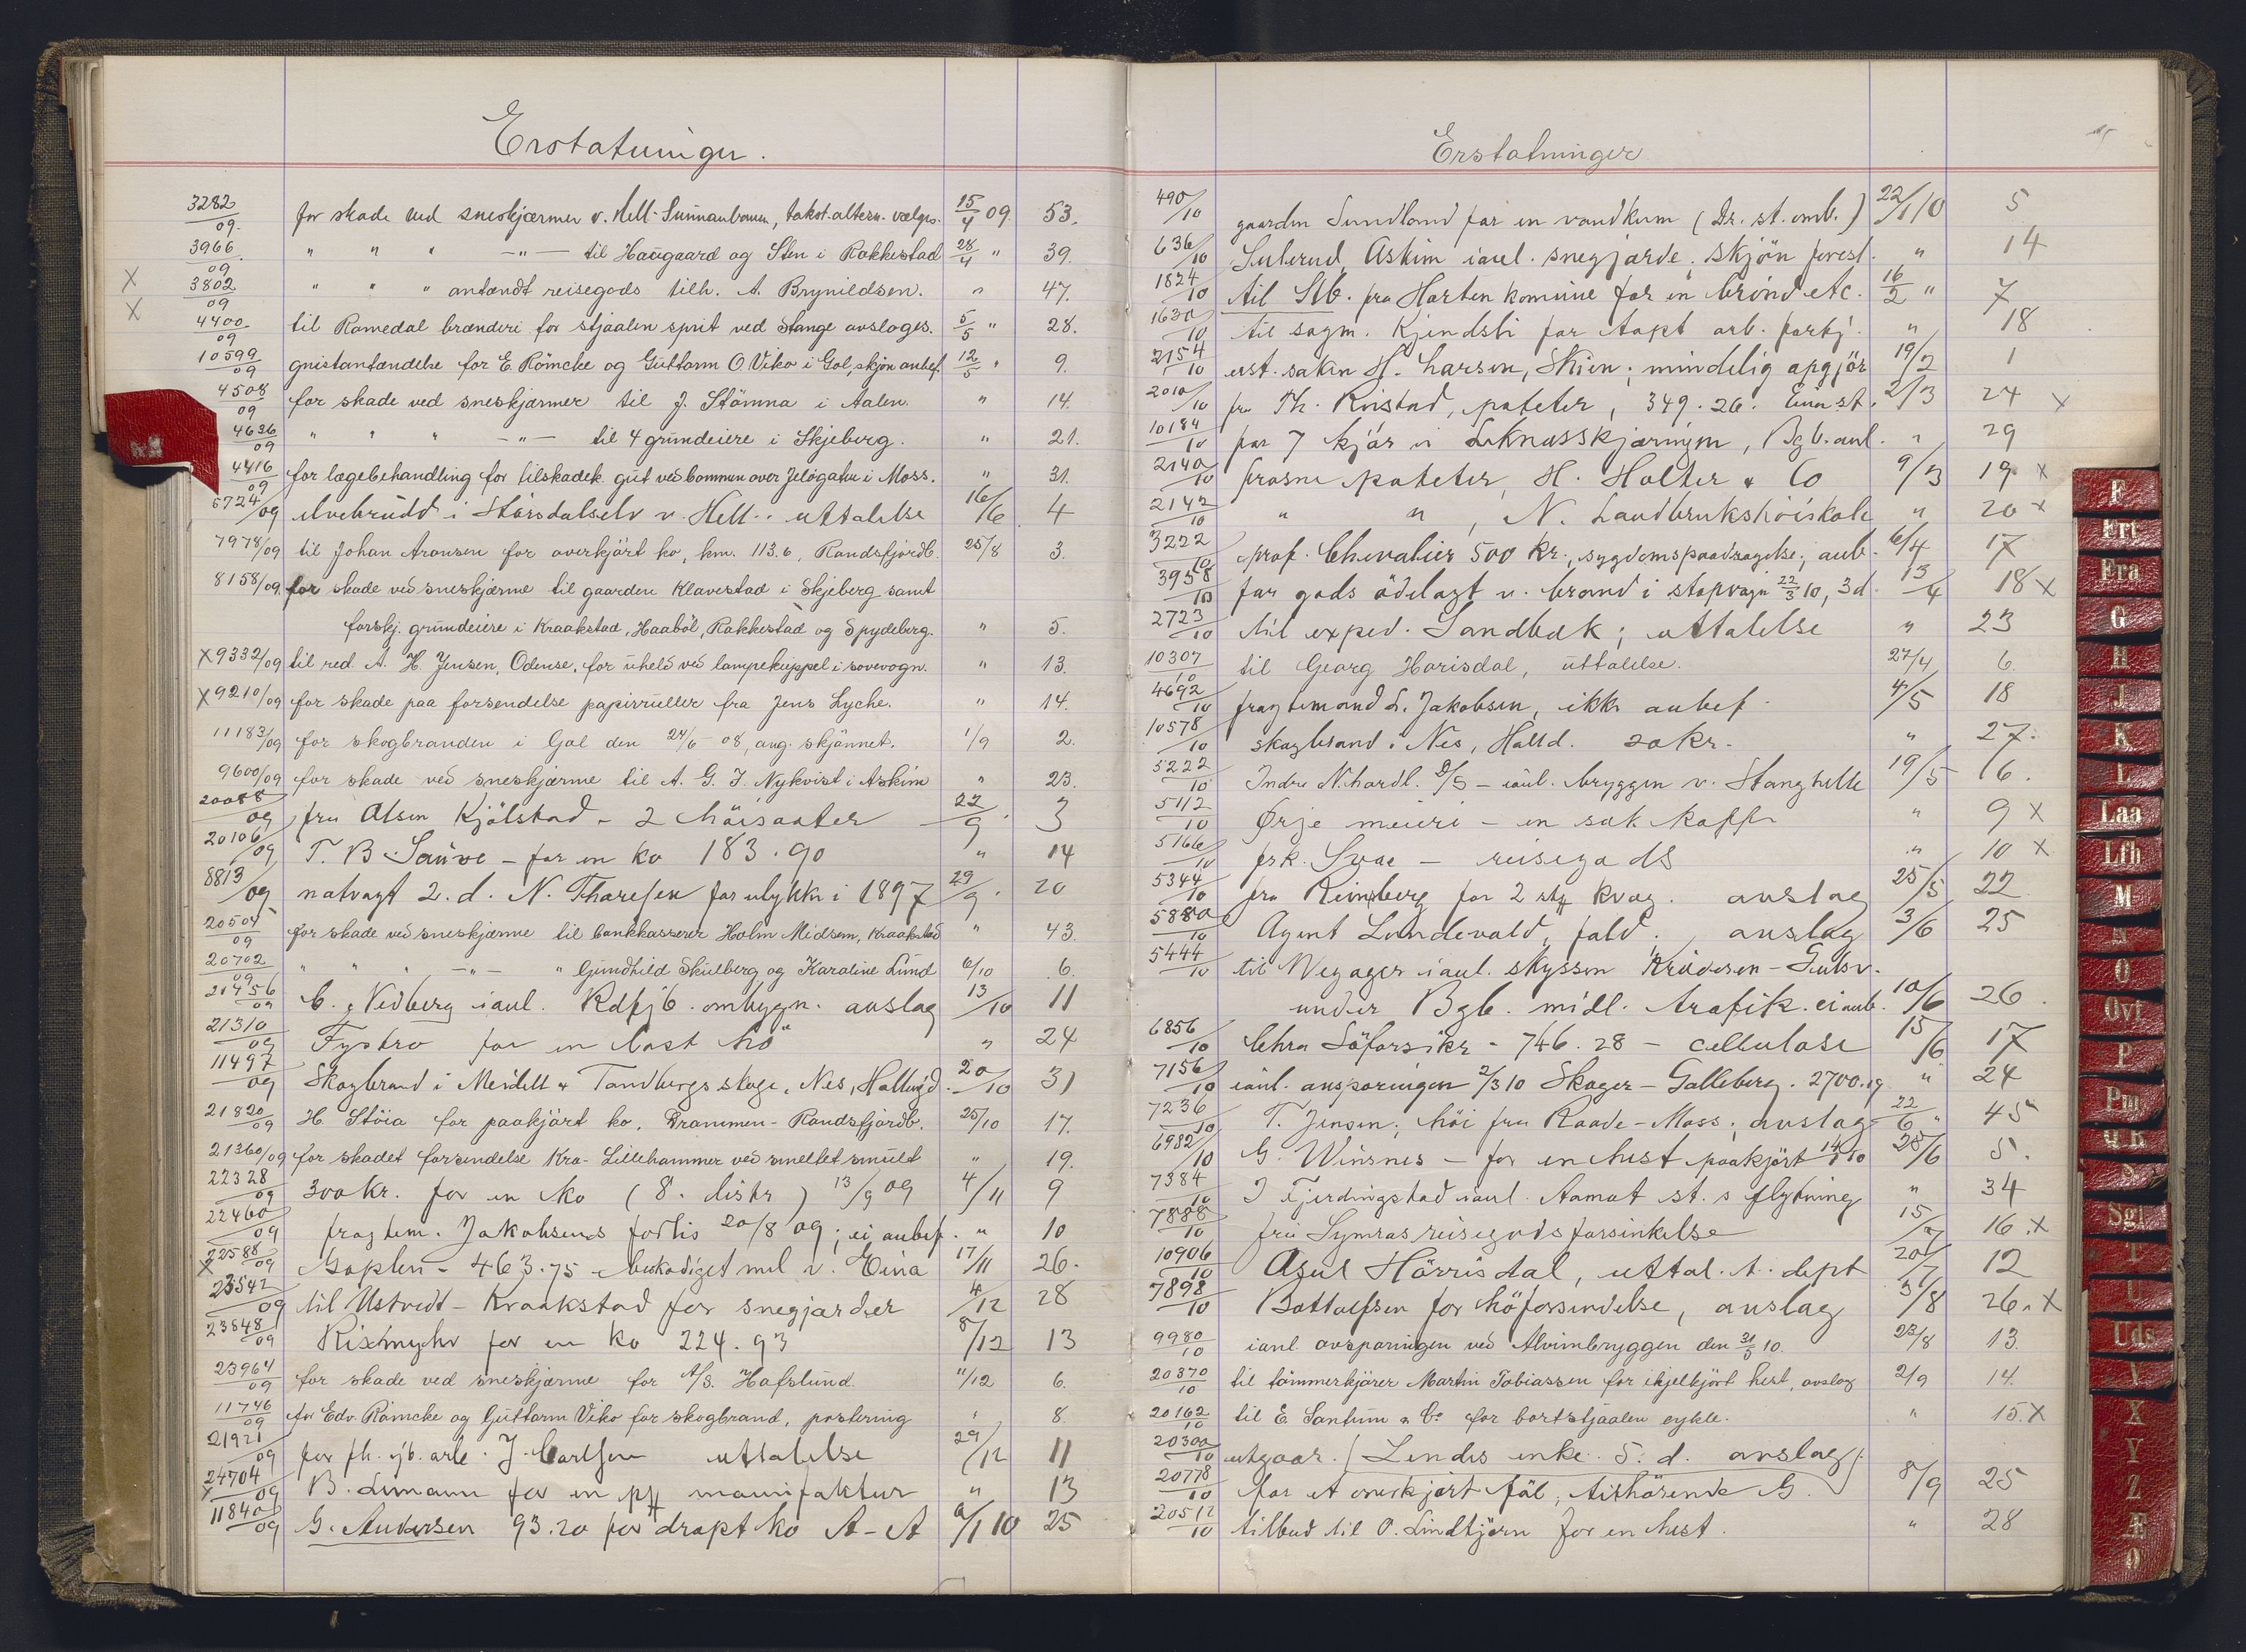 Erstatninger.
3282/09. for skade ved sneskjærmer v. Hell-Sunnanbanen, takst.altern. vælges. 15/4 09. 53.
3966/09 " " " -"- til Haugaard og Sten i Rakkestad 28/4 " 39.
X 3802/09 " " " antændt reisegods tilh. A. Brynildsen. " 47.
X 4400/09 til Romedal brænderi for stjaalen sprit ved Stange avslages. 5/5 " 28.
10599/09 gnistantændelse for E. Römcke og Guttorm O. Viko i Gol, skjøn anbef. 12/5 " 9.
4508/09 for skade ved sneskjærmer til J. Stömna i Aalen. " 14.
4636/09 " " " -"- til 4 grundeiere i Skjeberg. " 21.
4416/09 for lægebehandling for tilskadek. gut ved bommen over Jeløgaten i Moss. " 31.
6724/09 elvebrudd i Störsdalselv v. Hell.. uttalelse 16/6 4
7978/09 til Johan Aronsen for overkjört ko, km. 113.6, Randsfjordb. 25/8 3.
8158/09. for skade ved sneskjærme til gaarden Klavestad i Skjeberg samt
forskj. grundeiere i Kraakstad, Haaböl, Rakkestad og Spydeberg. " 5.
X 9332/09 til red. A. H. Jensen, Odense, for uheld ved lampekuppel i sovevogn. " 13.
X 9210/09 for skade paa forsendelse papirruller fra Jens Lyche. " 14.
11183/09 for skogbranden i Gol den 24/6 08, ang. skjønnet. 1/9 2.
9600/09 for skade ved sneskjærme til A. G. J. Nykvist i Askim " 23.
20088/09 fru Olsen Kjölstad - 2 höisaater 22/9 3
20106/09 T. B. Sauve - for en ko 183.90 " 14
8813/09 natvagt 2. d. N. Thoresen for ulykke i 1897 29/9 20
20504/09 for skade ved sneskjærme til bankkasserer Holm Midsem, Kraakstad " 43.
20702/09 " " " -"- " Gundhild Skulberg og Karoline Lund 6/10 6.
21456/09 C. Nedberg ianl. Rdfjb. ombygn. avslag 13/10 11
21310/09 Fystro for en last hö " 24
11497/09 Skogbrand i Meidell & Tandbergs skoge, Nes, Hallingd. 20/10 31
21820/09 H. Stöia for paakjört ko. Drammen-Randsfjordb. 25/10 17.
21360/09 for skadet forsendelse Kra-Lillehammer ved smeltet smult " 19.
22328/09 300 kr. for en ko (8. distr.) 13/9 09 4/11 9
22460/09 fragtem. Jakobsens forlis 20/8 09; ei anbef. " 10
X 22588/09 Gaplen - 463.75 - beskadiget mel v. Eina 17/11 26.
23542/09 til Ustvedt - Kraakstad for snegjærder 4/12 28
23848/09 Rismyhr for en ko 224.93 8/12 13
23964/09 for skade ved sneskjærme for A/S. Hafslund. 11/12 6.
11746/09 for Edv. Römcke og Guttorm Viko for skogbrand, postering " 8.
21921/09 for fh. jb. arb. J. Carlsen uttalelse 29/12 11
X 24704/09 B. Limann for en pk manufaktur " 13
11840/09 G. Andersen 93.20 for dræpt ko A-A 6/1 10 25
Erstatninger
490/10 gaarden Sundland for en vandkum (Dr. st. omb.) 22/1 10 5
636/10 Suterud, Askim ianl. snegjærde. Skjön forest. " 14
1824/10 til Stb. fra Horten komune for en brönd etc. 16/2 " 7
1630/10 til sagm. Kjendsli for tapt arb. fortj. " 18
2154/10 erst. saken H. Larsen, Skien; mindelig opgjör 19/2 1
2010/10 fra Th. Kristad, poteter, 349.26. Eina st. 2/3 24 X
10184/10 for 7 kjör i Leknesskjæringen, Bgb. anl. " 29
2140/10 frosne poteter, H. Holter & Co 9/3 19 X
2142/10 " " , N. Landbrukshöiskole " 20 X
3222/10 prof. Chevalier 500 Kr., sygdomspaadragelse; anb. 6/4 17
3958/10 for gods ödelagt v. brand i stopvogn 22/3 10, 3d. 13/4 18 X
2723/10 til exped. Sandbæk; uttalelse " 23
10307/10 til Georg Horisdal, uttalelse. 27/4 6.
4692/10 fragtemand L. Jakobsen, ikke anbef. 4/5 18
10578/10 skogbrand i Nes, Halld. 20 kr. " 27.
5222/10 Indre N. hardl. D/S - ianl. bryggen v. Stanghelle 19/5 16.
5112/10 Ørje meieri - en sæk kaffe " 9 X
5166/10 frk. Svae - reisegods " 10 X
5344/10 fra Reinsberg for 2 stk kvæg. avslag 25/5 22
5880/10 Agent Lundevald, fald. avslag 3/6 25
5444/10 til Wegager ianl. skyssen Kröderen-Gulsv.
under Bgb. midl. trafik. ei anb. 10/6 26
6856/10 Chra Söforsikr - 746.28 - cellulose 15/6 17
7156/10 ianl. avsporingen 2/3 10 Skoger-Galleberg. 2700.19 " 24
7236/10 T. Jensen; höi fra Raade-Moss; avslag 22/6 " 45
6982/10 G. Winsnes - for en hest paakjört 28/6 5.
7384/10 J Fjerdingstad ianl. Aamot st.s flytning " 34
7888/10 fru Symras reisegodsforsinkelse 15/7 16. X
10906/10 Asul Hörrisdal, uttal. t. dept 20/7 12
7898/10 Bottolfsen for höforsendelse, avslag 3/8 26. X
9980/10 ianl. avsporingen ved Alvimbryggen den 31/5 10. 23/8 13.
20370/10 til tömmerkjörer Martin Tobiassen for ihjelkjört hest, avslag 2/9 14.
20162/10 til E. Santum & Co for bortstjaalen cykle. " 15. X
20300/10 utgaar. (Lendes enke. 5. d. avslag).
20778/10 for et overkjört föl, tilhörende G. 8/9 25
20512/10 tilbud til O. Lindtjörn for en hest. " 28
F
Frt
Fra
G
H
J
K
L
Laa
Lfb
M
N
O
Ovf
P
Pm
Q R
S
Sgl
T
U
Uds
V
X
Y
Z
Æ
Ø